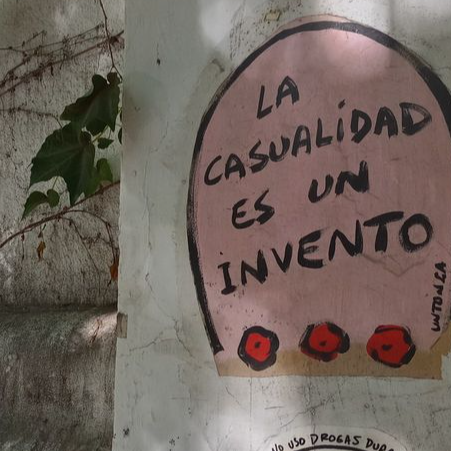 LA
CASUALIDAD
ES UN
INVENTO
UNTONGA
USO DROGAS